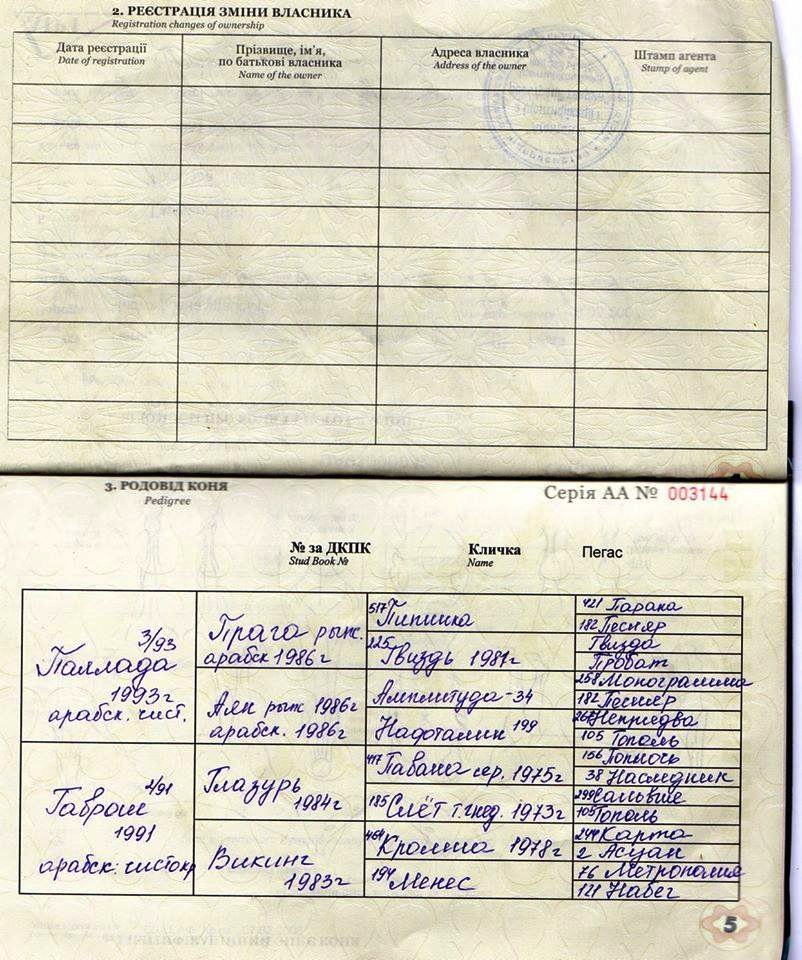 2. РЕЄСТРАЦІЯ ЗМІНИ ВЛАСНИКА
Registration changes of ownership
Дата реєстрації
Date of registration
Прізвище, ім'я,
по батькові власника
Name of the owner
Адреса власника
Address of the owner
Штамп агента
Stamp of agent
3. РОДОВІД КОНЯ
Pedigree
Серія АА № 003144
№ за ДКПК
Stud Book №
Кличка
Name
Пегас
3/93
Паллада
1993г
арабск. чист.
Прага рыж.
арабск 1986г
517 Пипина
421 Парана
182 Песняр
225 Гвиздь 1981г
Гвизда
Пробат
Аян рыж 1986г
арабск. 1986г
Амплитуда - 34
258 Монограмма
182 Песняр
Нафоталин 199
Непрядва
105 Тополь
2/91
Габрош
1991
арабск. чистокр
Глазурь
1984г
417 Павана сер. 1975г
156 Попнось
38 Наследник
185 Слёт т.гнед. 1973г
299
105 Тополь
Викинг
1983г
464 Кромма 1978г
244 Карта
2 Асуан
194 Менес
76 Метрополия
121 Набег
5